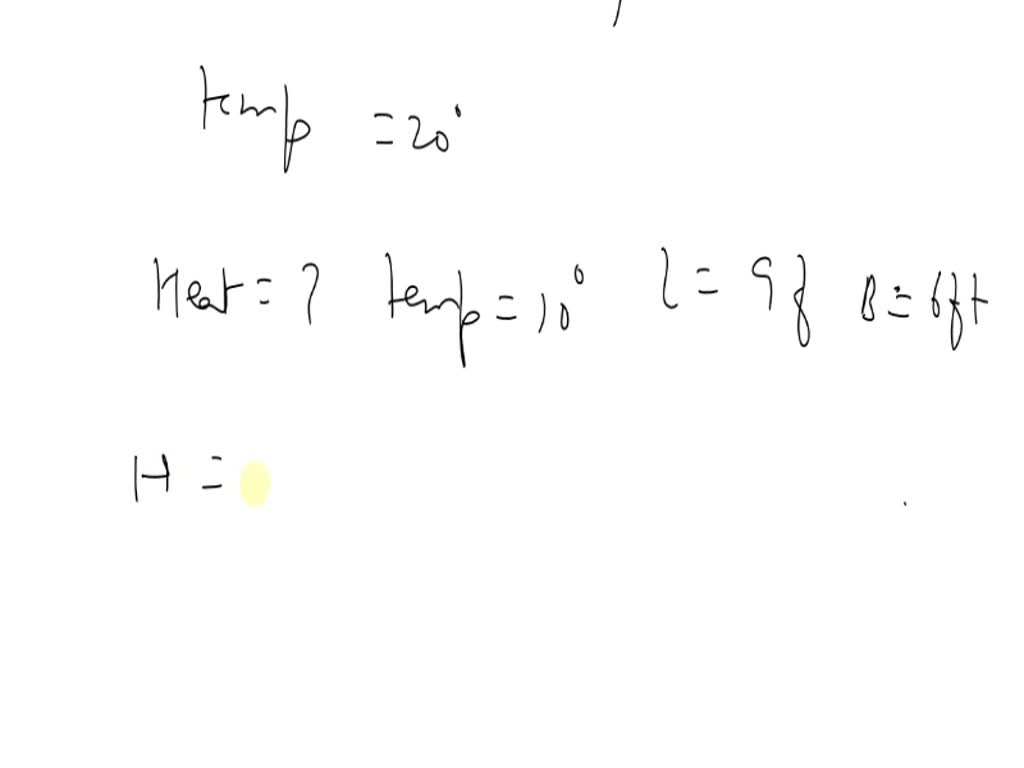 temp = 20°
Heat = ? temp = 10° l = 9f B = 6ft
H =